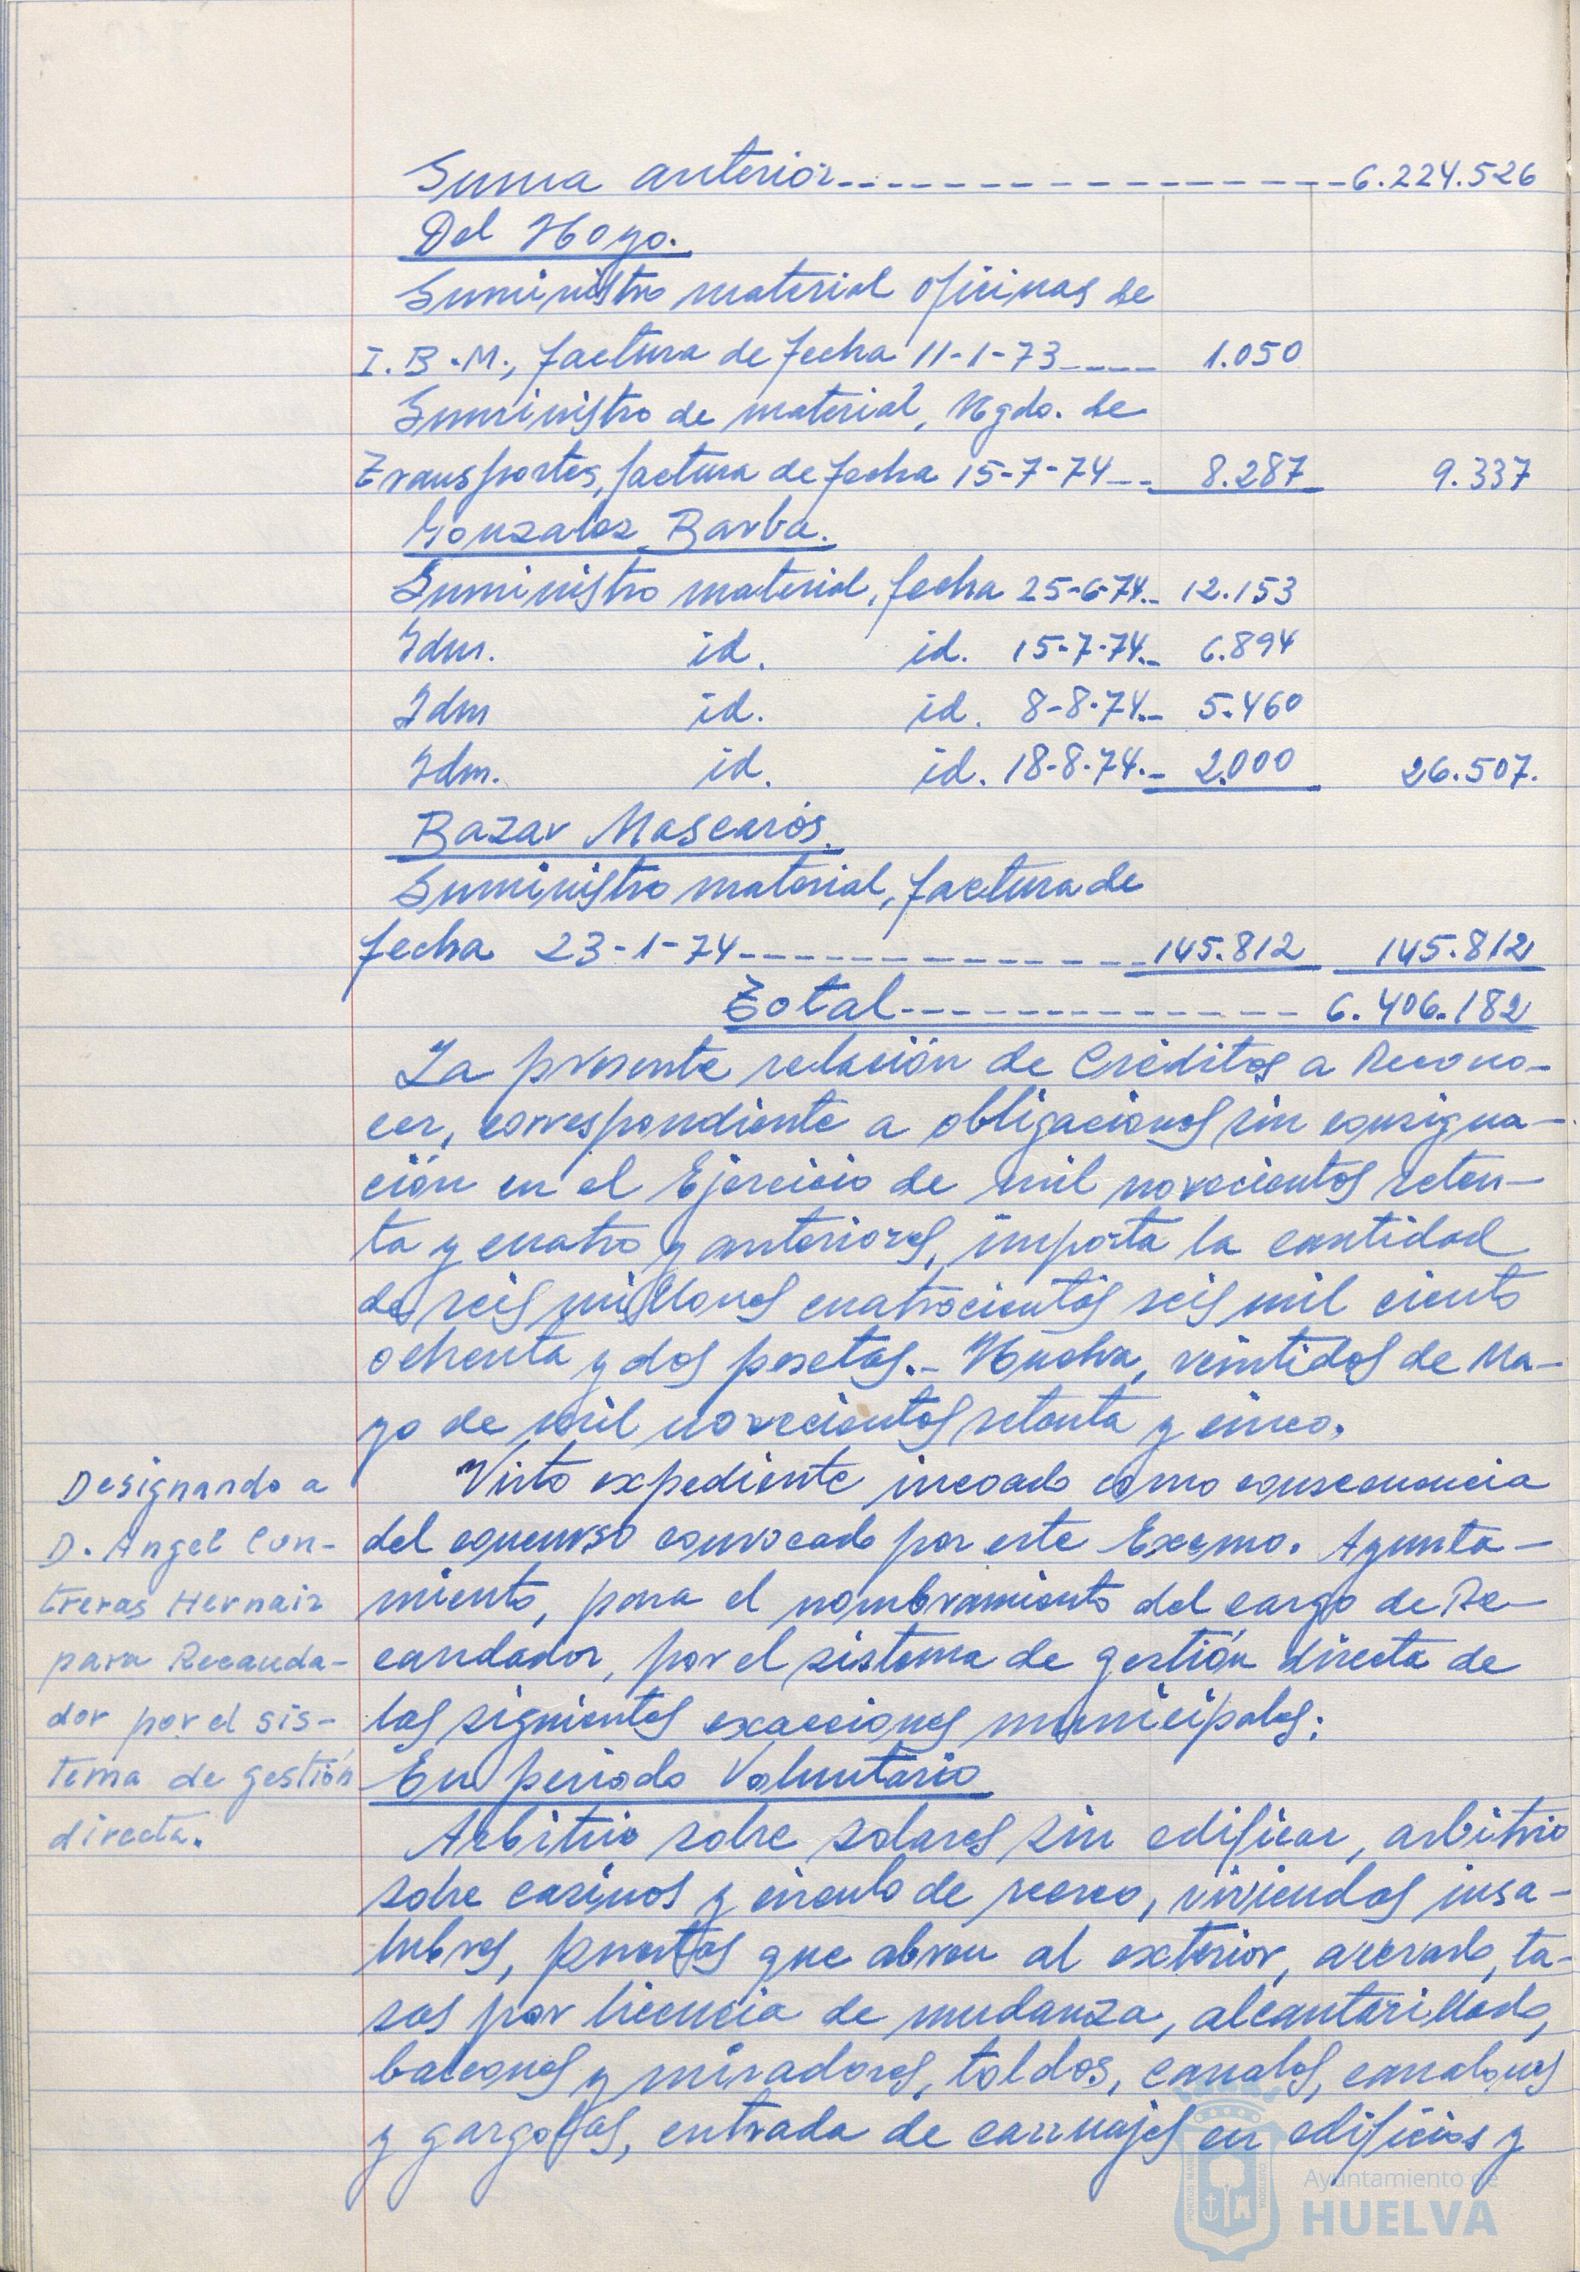 Suma anterior------------------6.224.526
Del Hoyo.
Suministro material oficinas de
I.B.M., factura de fecha 11-1-73---- 1.050
Suministro de material, Ngdo. de
Transportes, factura de fecha 15-7-74-- 8.287 9.337
Gonzalez Barba.
Suministro material, fecha 25-6-74.- 12.153
Idm. id. id. 15-7-74.- 6.894
Idm id. id. 8-8-74.- 5.460
Idm. id. id. 18-8-74.- 2.000 26.507.
Bazar Mascarós.
Suministro material, factura de
fecha 23-1-74--------------145.812 145.812
Total-------------- 6.406.182
La presente relación de Créditos a Recono-
cer, correspondiente a obligaciones sin consigna-
ción en el Ejercicio de mil novecientos seten-
ta y cuatro y anteriores, importa la cantidad
de seis millones cuatrocientos seis mil ciento
ochenta y dos pesetas.- Huelva, veintidos de Ma-
yo de mil novecientos setenta y cinco.
Designando a
D. Angel Con-
treras Hernaiz
para Recauda-
dor por el sis-
tema de gestión
directa.
Visto expediente incoado como consecuencia
del concurso convocado por este Excmo. Ayunta-
miento, para el nombramiento del cargo de Re-
caudador, por el sistema de gestión directa de
las siguientes exacciones municipales:
En periodo Voluntario
Arbitrio sobre solares sin edificar, arbitrio
sobre casinos y circulo de recreo, viviendas insa-
lubres, puertas que abren al exterior, acerado, ta-
sas por licencia de mudanza, alcantarillado,
balcones y miradores, toldos, canales, canalones
y gargolas, entrada de carruajes en edificios y
Ayuntamiento de
HUELVA